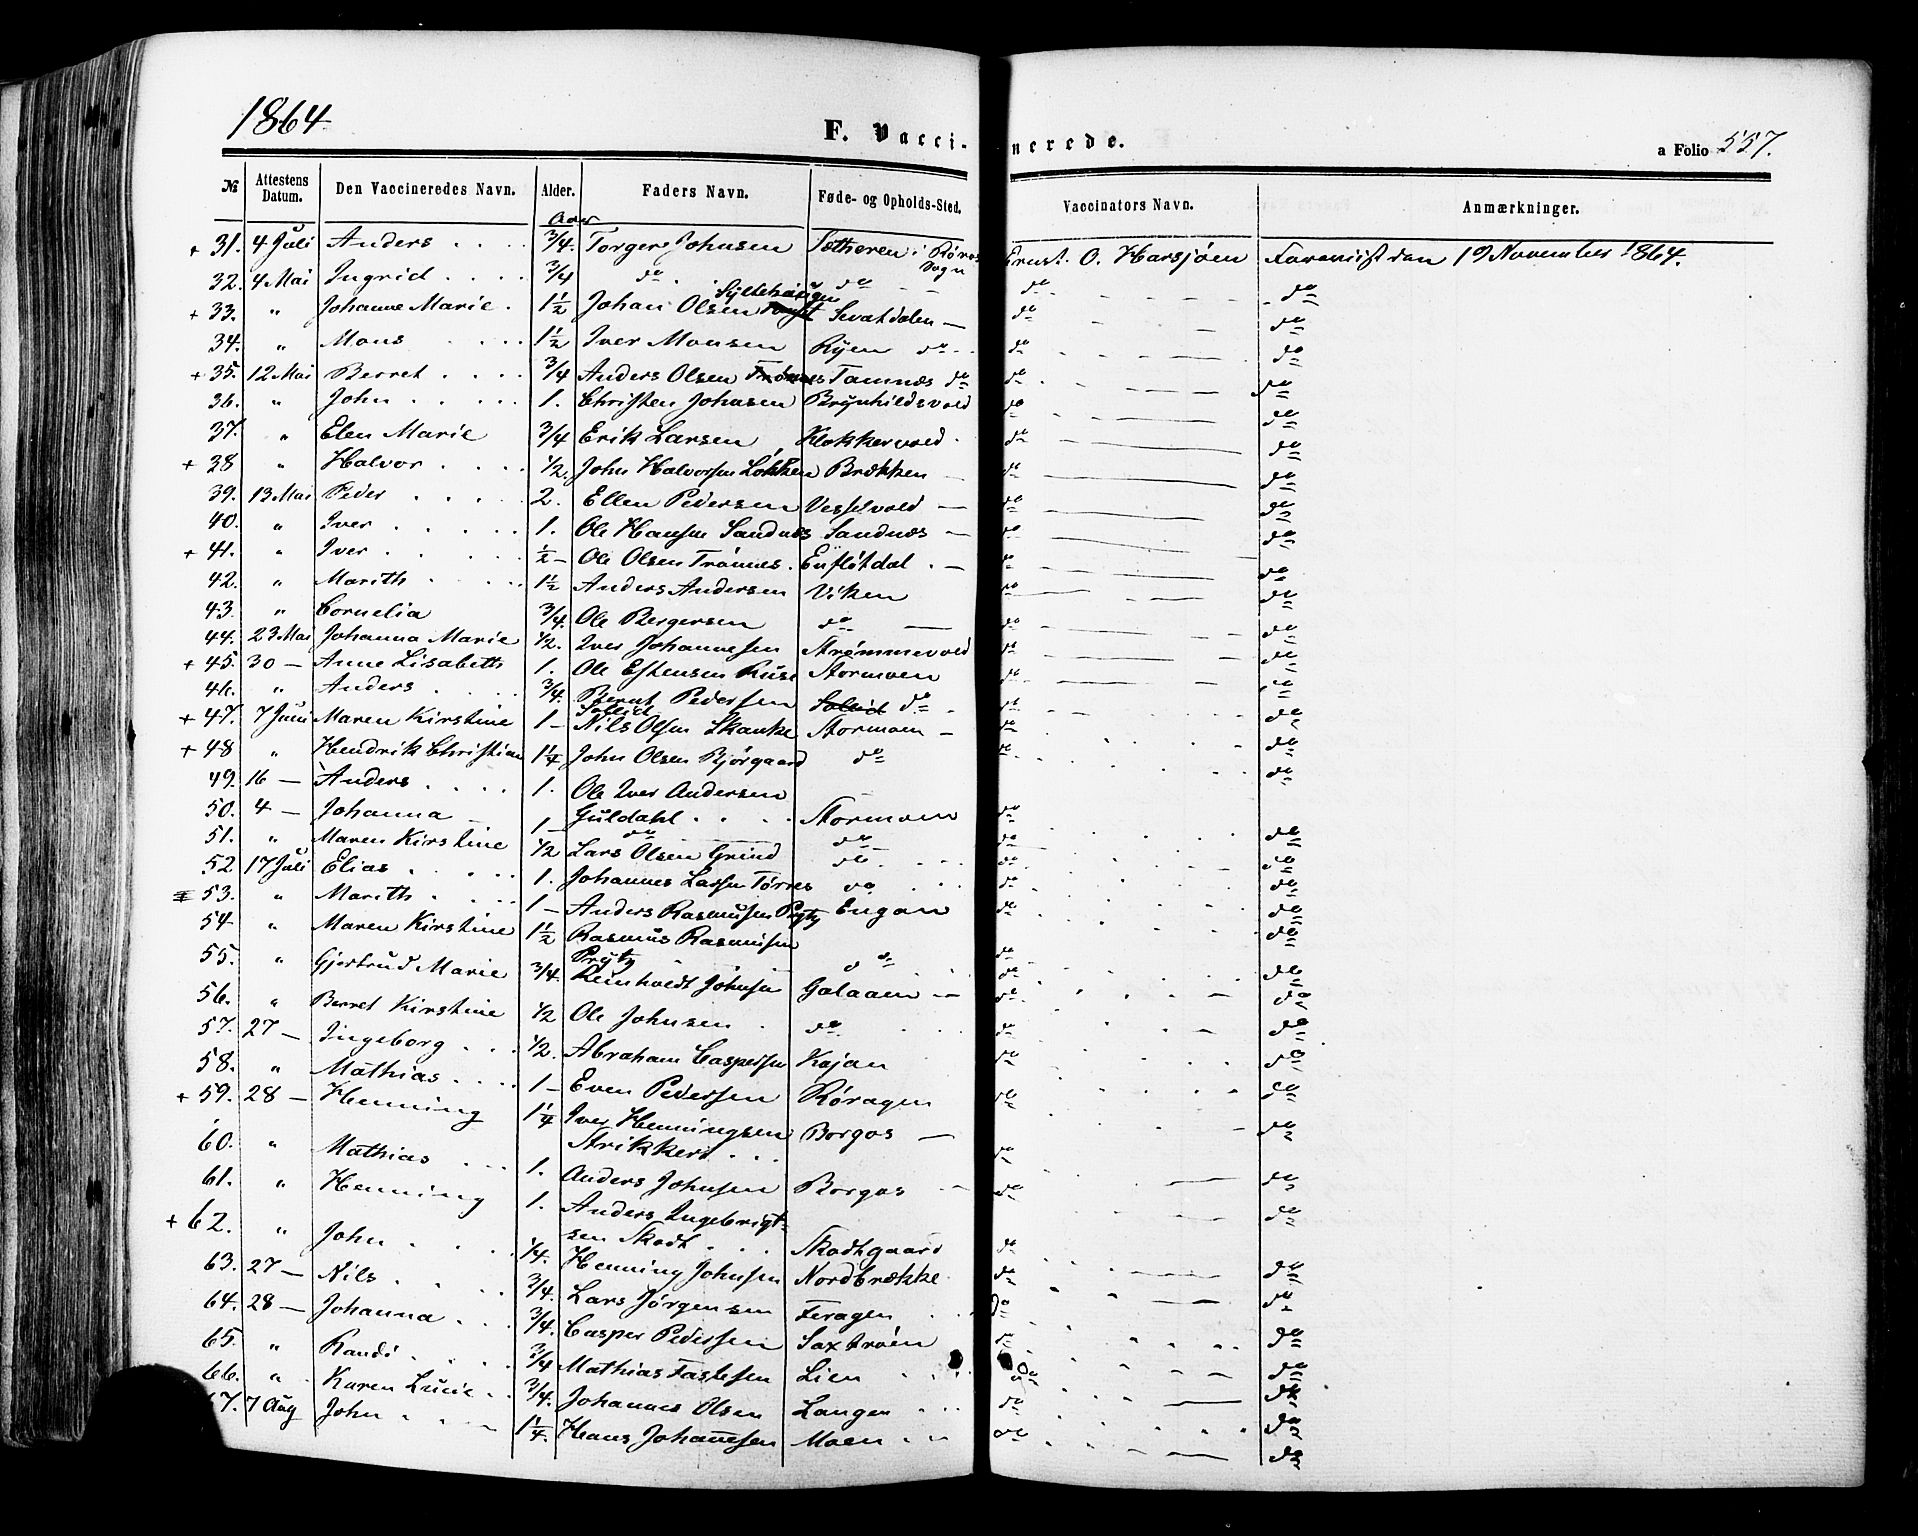 1864
F. Vacci-nerede.
a Folio 557.
№ Attestens Datum. Den Vaccineredes Navn. Alder. Faders Navn. Føde- og Opholds-Sted. Vaccinators Navn. Anmærkninger.
Aar
+ 31. 4 Juli Anders 3/4. Torger Johnsen Sætheren i Røros Sogn Ernst O. Harsjøen Foreviist den 19 November 1864.
32. 4 Mai Ingrid 3/4 do do do do
+ 33. " Johanne Marie 1 1/2 Johan Olsen Syltehaugen Sevatdalen — do do
34. " Mons 1 1/2 Iver Monsen Ryen do do do
+ 35. 12 Mai Berret 3/4 Anders Olsen Tamnæs do do do
36. " John 1. Christen Johnsen Brynhildsvold do do
37. " Elen Marie 3/4 Erik Larsen Klokkervold do do
+ 38 " Halvor 1/2. John Halvorsen Løkken Brækken — do do
39. 13 Mai Peder 2. Ellen Pedersen Vesselvold — do do
40. " Iver 1. Ole Hansen Sandnæs Sandnæs — do do
+ 41. " Iver 1/2 — Ole Olsen Trønnes Enflotdal — do do
42. " Marith 1 1/2 Anders Andersen Viken do do
43. " Cornelia 3/4. Ole Bergersen do — do do
44. 23 Mai Johanna Marie 1/2. Iver Johannesen Strømmevold do do
+ 45. 30 — Anne Lisabeth 1. Ole Estensen Ruse Stormoen do do
46. " Anders 3/4. Bernt Pedersen Solliet do do do
+ 47. 7 Juni Maren Kirstine 1 — Nils Olsen Skanke Stormoen — do do
+ 48 " Hendrik Christian 1 1/4 John Olsen Bjørgaard do do do
49. 16 — Anders 1. Ole Iver Andersen
50. 4 — Johanna 1 — Guldahl Stormoen do do
51. " Maren Kirstine 1/2 do do do do
52 17 Juli Elias 1. Lars Olsen Grind do do do
53. " Marith 1 — Johannes Larsen Tørres do do do
54. " Maren Kirstine 1 1/2 Anders Rasmussen Prytz Engan do do
55. " Gjertrud Marie 3/4. Rasmus Rasmussen Prytz do do do
56. " Berret Kirstine 1/2 Reinholdt Johnsen Galaaen — do do
57. 27 — Ingeborg 1/2. Ole Johnsen do do do
58. " Mathias 1 — Abraham Caspersen Kojan do do
+ 59. 28 — Henning 1 1/4 Even Pedersen Røragen do do
60. " Mathias 1. Iver Henningsen Borgos —
61. " Henning 1. Anders Johnsen Borgos — do do
+ 62. " John 1/4. Anders Ingebrigt-
sen Skodt Skodtgaard do do
63. 27 — Nils 3/4. Henning Johnsen Nordbrække do do
64. 28 — Johanna 3/4. Lars Jørgensen Feragen do do
65. " Randi 3/4 Casper Pedersen Saxtrøen do do
66. " Karen Lucie 3/4. Mathias Fastesen Lien do do
67. 7 Aug John 1 1/4. Johannes Olsen Langen do do
Hans Johannesen Moen do do